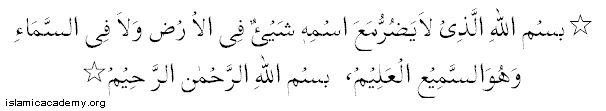 ☆ بِسْمِ اللهِ الَّذِیْ لاَ یَضُرُّ مَعَ اسْمِهٖ شَیْئٌ فِی الْاَرْضِ وَلاَ فِی السَّمَاءِ
وَهُوَ السَّمِیْعُ الْعَلِیْمُ، بِسْمِ اللهِ الرَّحْمٰنِ الرَّحِیْمُ ☆
islamicacademy.org